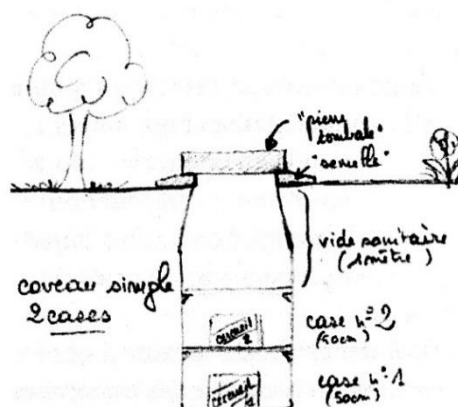 "pierre
tombale"
"semelle"
vide sanitaire
(1 mètre)
caveau simple
2 cases
case n° 2
(50cm)
cercueil
2
case n° 1
(50cm)
cercueil
1